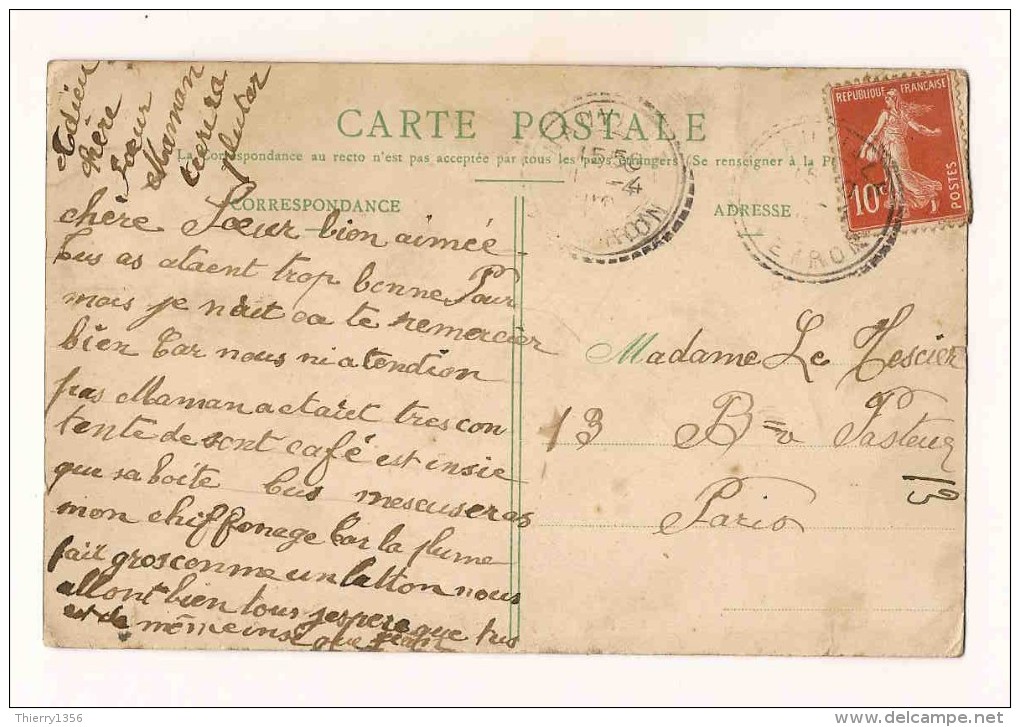 CARTE POSTALE
La Correspondance au recto n'est pas acceptée par tous les pays étrangers (Se renseigner à la
CORRESPONDANCE
ADRESSE
REPUBLIQUE FRANÇAISE
10c
POSTES
chère Sœur bien aimée
tus as ataent trop bonne Pour
mois je nait oa te remercier
bien Car nous ni atendion
pas Maman a etaiet tres con
tente de sont café est insie
que sa boite tus mescuseras
mon chiffonage Car la plume
fait gros conme un batton nous
allont bien tous jespere que tus
et de même insi que
Madame Le Tescier
13 Bv Pasteur
Paris
13
Frère
Sœur
Maman